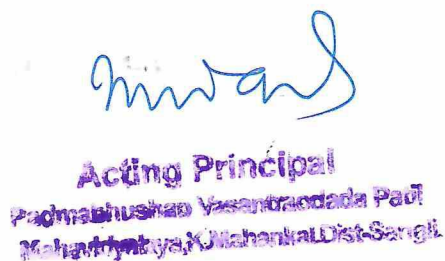 Acting Principal
Padmabhushan Vasantraodada Patil
Mahavidyalaya,K.Mahankal.Dist-Sangli.